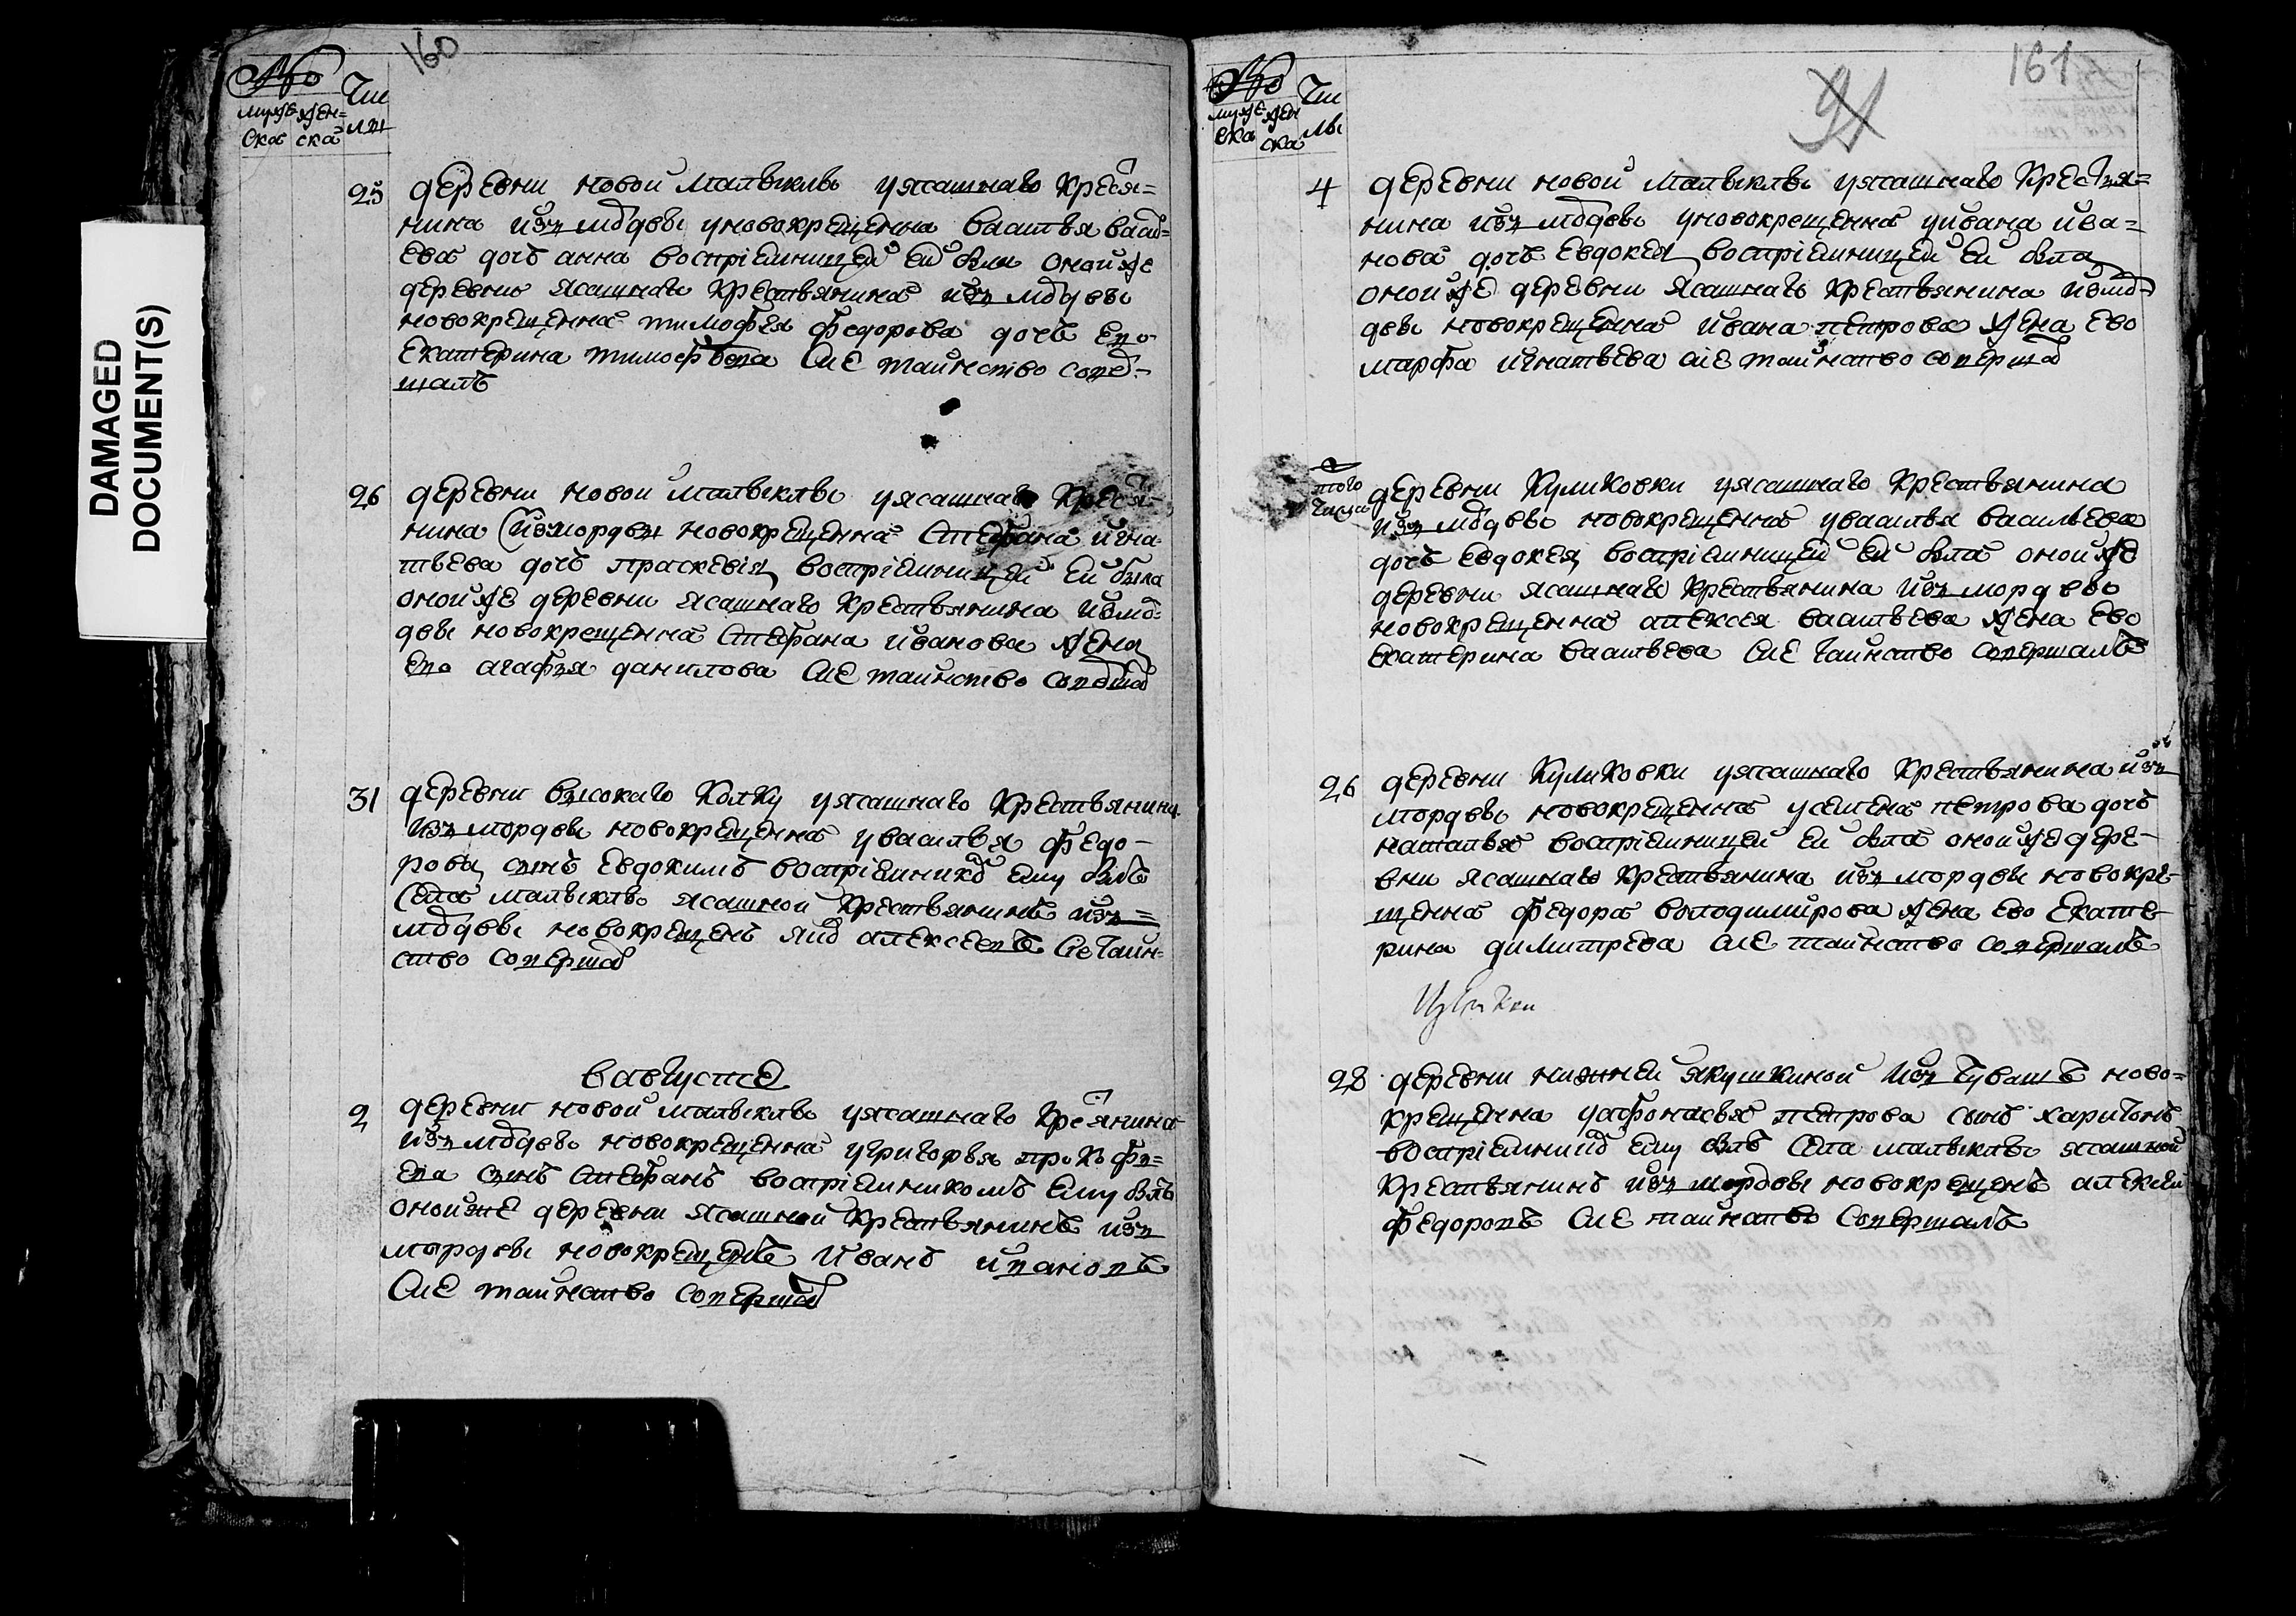 DAMAGED
DOCUMENT(S)
160
№
Чи
муже жен= сла
ска ска
25 деревни новой Малыклы уясашнаго кресья=
нина изъ мордвы уновокрещенна василья васи=
ева дочь анна воспріемницей ей была оной же
деревни ясашнаго крестьянина изъ мордвы
новокрещенна тимофея федорова дочь ево
Екатерина тимофѣева Сие таинство совер=
шалъ
26 деревни новой малыклы уясашнаго кресья=
нина изъ мордвы новокрещенна Стефана игна
тьева дочь праскевія воспріемницей ей была
оной же деревни ясашнаго крестьянина измор=
двы новокрещенна Стефана иванова жена
ево агафья данилова Сие таинство совершал
31 деревни высокаго Колку уясашнаго крестьянина
изъ мордвы новокрещенна увасилья федо=
рова сынъ Евдокимъ воспріемником ему былъ
Села малыклы ясашной крестьянинъ изъ=
мордвы новокрещенъ алексеевъ Сие таин=
ство совершал
Вавгусте
2 деревни новой малыклы уясашнаго кресьянина
изъ мордвы новокрещенна угригорья прокофь=
ева сынъ Стефанъ воспріемникомъ ему былъ
оной же деревни ясашной крестьянинъ изъ
мордвы новокрещенъ Иванъ ивановъ
Сие таинство совершал
161
91
№
Чи
муже жен слы
ска ска
4 деревни новой малыклы уясашнаго крестья=
нина изъ мордвы уновокрещенна уивана ива=
нова дочь Евдокея воспріемницей ей была
оной же деревни ясашнаго крестьянина измор=
двы новокрещенна ивана петрова жена ево
марфа игнатьева сие таинство совершал
того
числа
деревни Куликовки уясашнаго крестьянина
изъ мордвы новокрещенна увасилья васильева
дочь евдокея воспріемницей ей была оной же
деревни ясашнаго крестьянина изъ мордвы
новокрещенна алексея васильева жена ево
екатерина васильева Сие таинство совершалъ
26 деревни Куликовки уясашнаго крестьянина изъ
мордвы новокрещенна усемена петрова дочь
наталья воспріемницей ей была оной же дере=
вни ясашнаго крестьянина изъ мордвы новокре=
щенна федора володимирова жена ево Екате
рина димитрева сие таинство совершалъ
28 деревни нижней якушкиной изъ чувашъ ново=
крещенна уафонасья петрова сынъ харитонъ
воспріемником ему былъ Села малыклы ясашной
крестьянинъ изъ мордвы новокрещенъ алексей
федоровъ Сие таинство Совершалъ